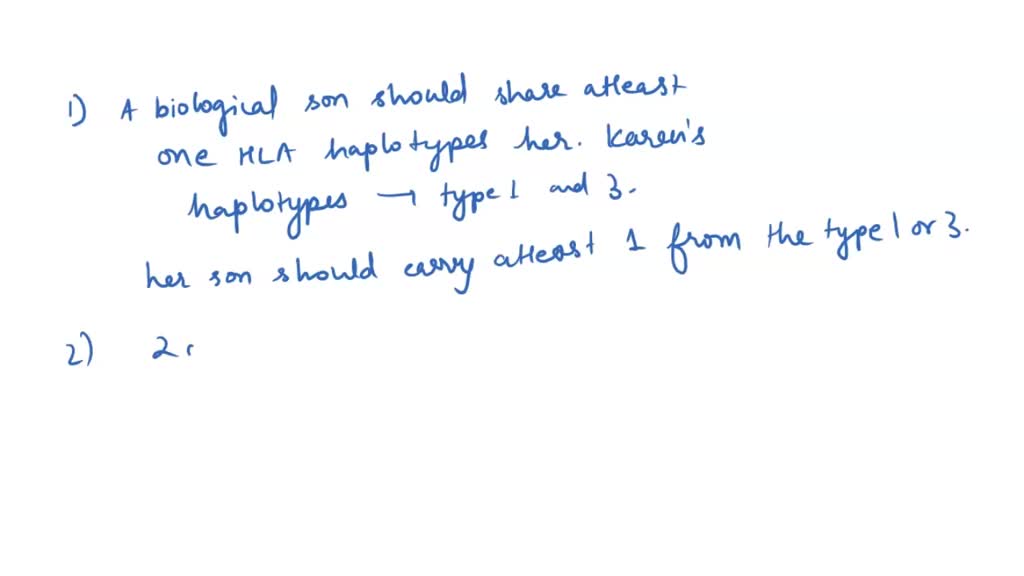 1) A biological son should share atleast
one HLA haplotypes her. Karen's
haplotypes → type 1 and 3.
her son should carry atleast 1 from the type 1 or 3.
2) 2